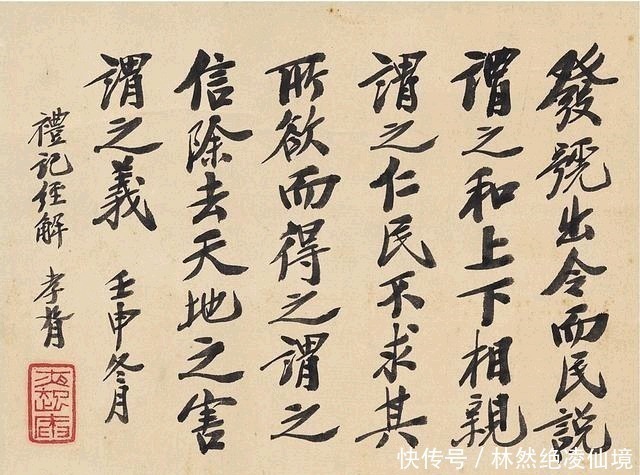 發號出令而民說
謂之和上下相親
謂之仁民不求其
所欲而得之謂之
信除去天地之害
謂之義 壬申冬月
禮記經解 孝胥
快传号 / 林然绝凌仙境